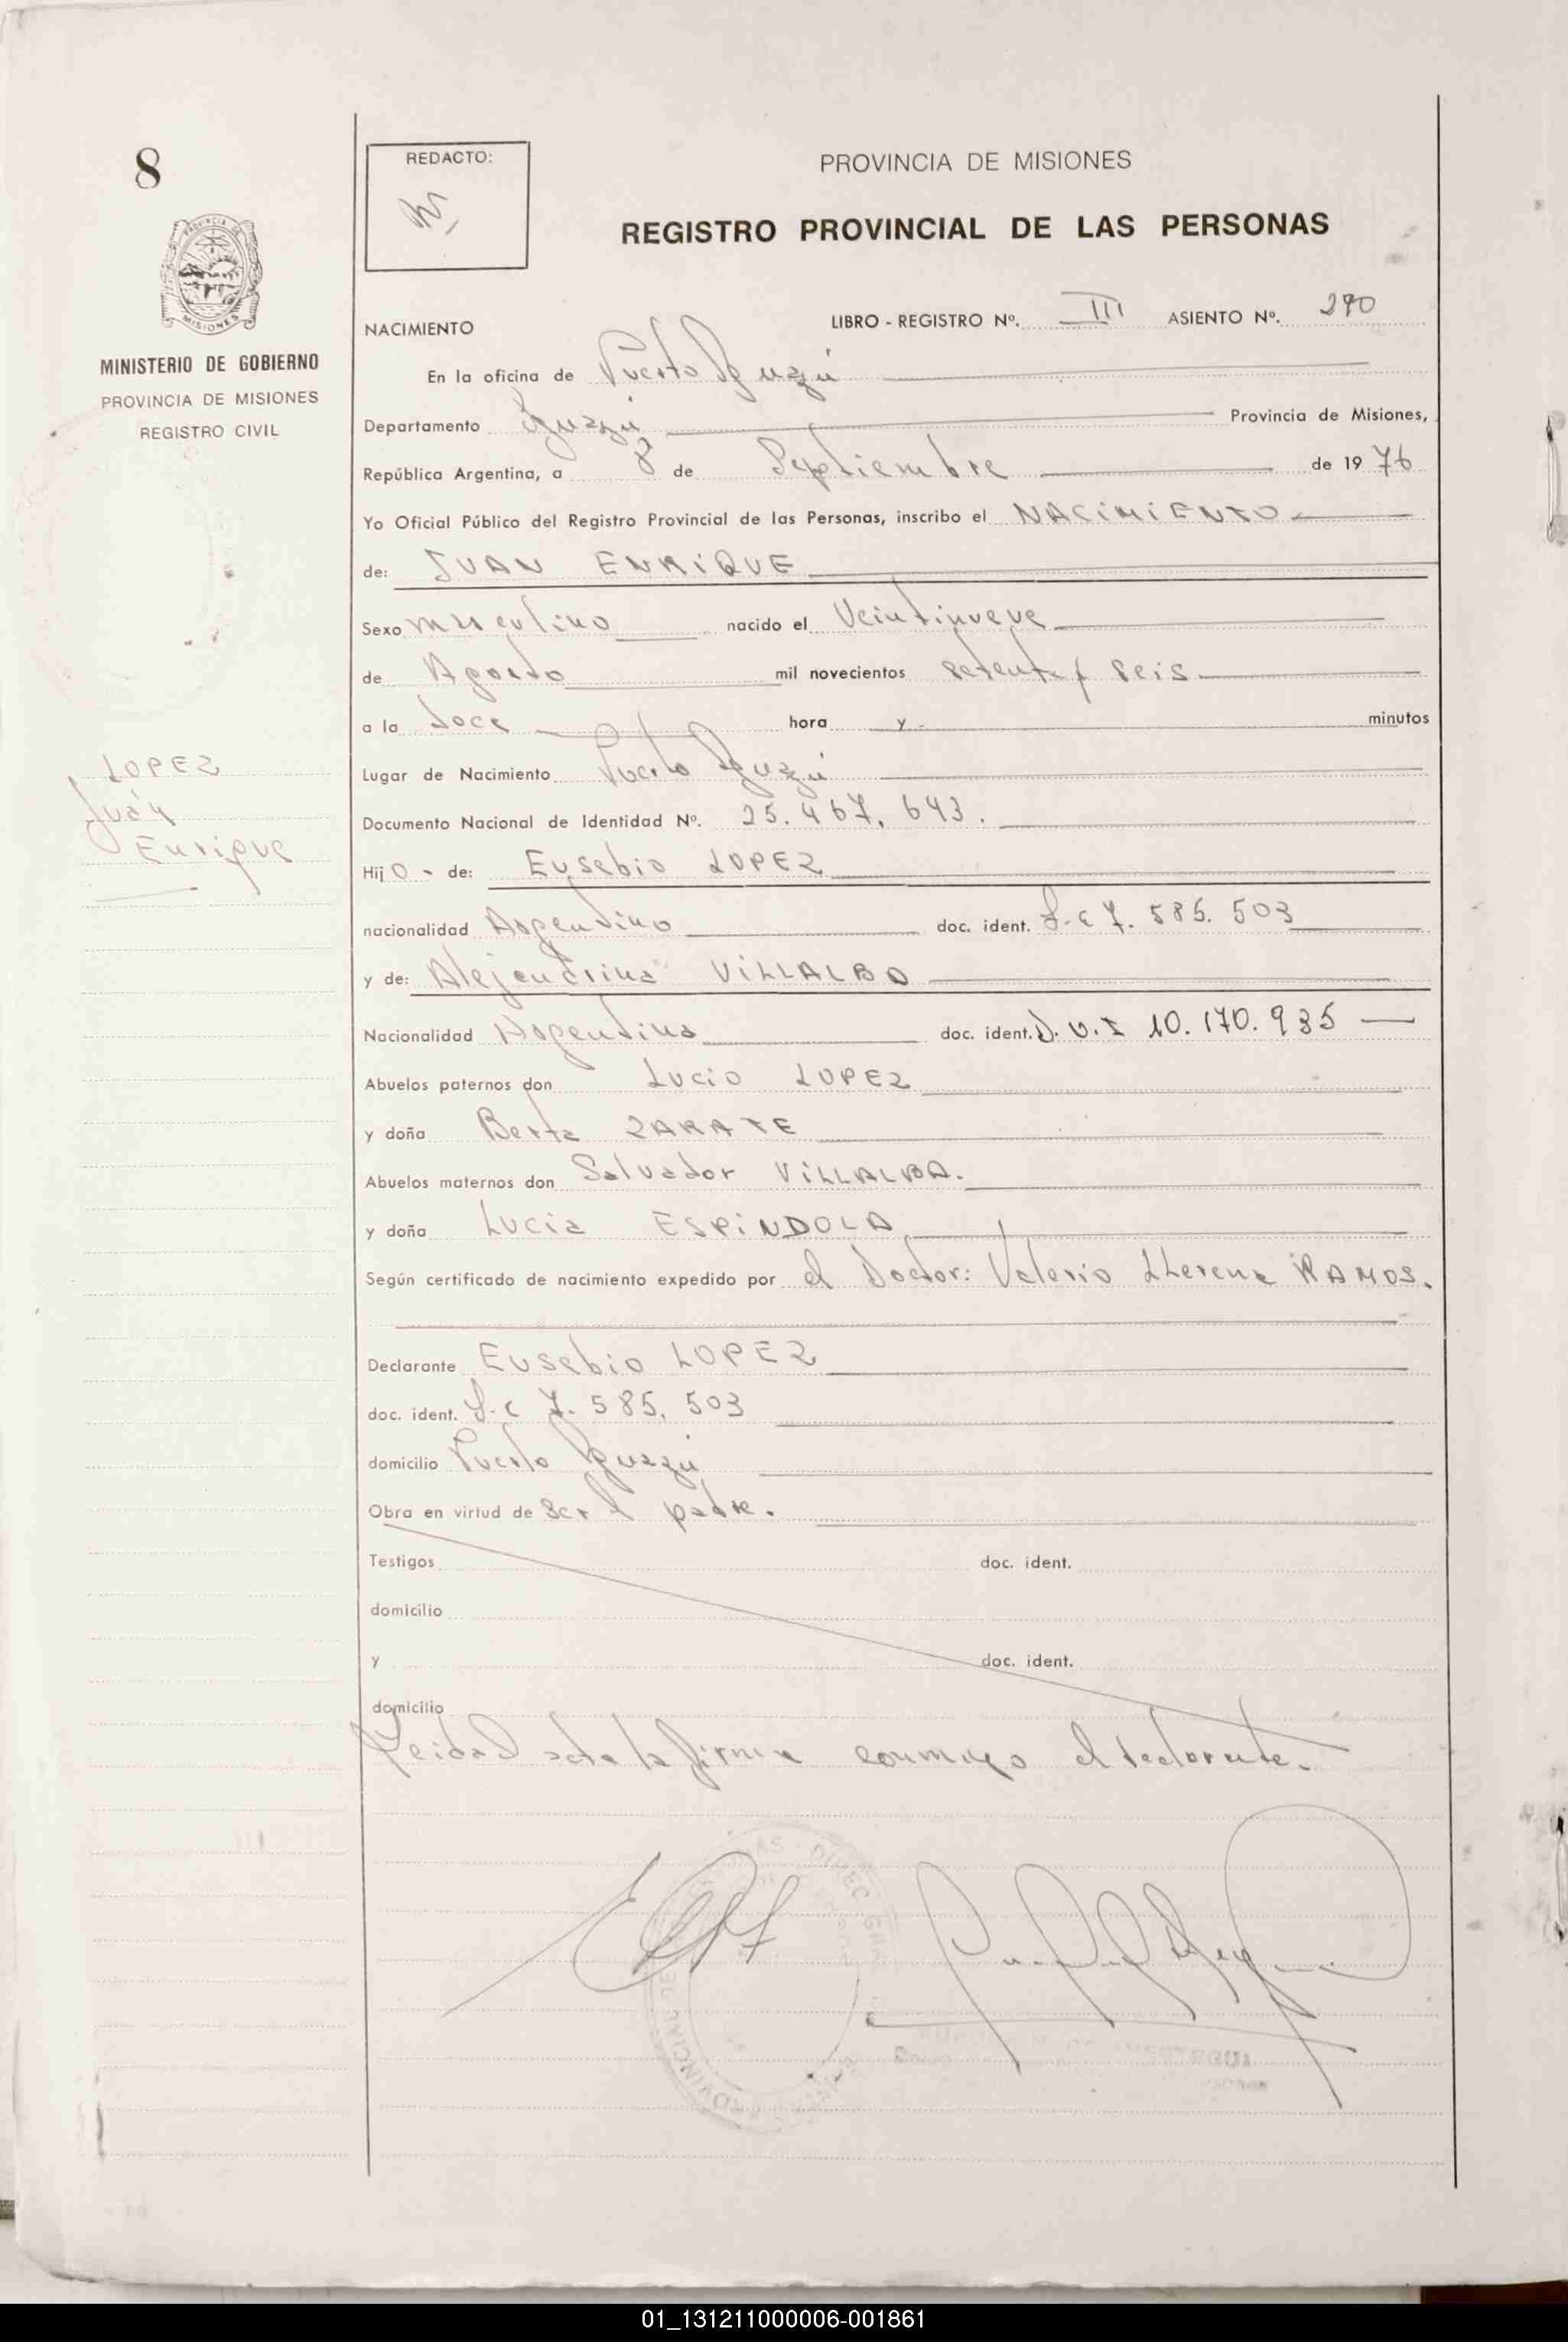 8
REDACTO:
PROVINCIA DE MISIONES
REGISTRO PROVINCIAL DE LAS PERSONAS
MISIONES
MINISTERIO DE GOBIERNO
PROVINCIA DE MISIONES
REGISTRO CIVIL
LOPEZ
Juan
Enrique
NACIMIENTO LIBRO - REGISTRO Nº. III ASIENTO Nº. 270
En la oficina de Puerto Iguazú
Departamento Iguazú Provincia de Misiones,
República Argentina, a 8 de Septiembre de 1976
Yo Oficial Público del Registro Provincial de las Personas, inscribo el NACIMIENTO
de: JUAN ENRIQUE
Sexo masculino nacido el Veintinueve
de Agosto mil novecientos setenta y seis
a la doce hora y - minutos
Lugar de Nacimiento Puerto Iguazú
Documento Nacional de Identidad Nº. 25.467.643.
Hijo - de: Eusebio LOPEZ
nacionalidad Argentino doc. ident. L.E 7.585.503
y de: Alejandrina VILLALBA
Nacionalidad Argentina doc. ident. D.N.I 10.170.935
Abuelos paternos don Lucio LOPEZ
y doña Berta ZARATE
Abuelos maternos don Salvador VILLALBA.
y doña Lucia ESPINDOLA
Según certificado de nacimiento expedido por el Doctor: Valerio Llerena RAMOS.
Declarante Eusebio LOPEZ
doc. ident. L.E 7.585.503
domicilio Puerto Iguazú
Obra en virtud de Ser el padre.
Testigos doc. ident.
domicilio
y doc. ident.
domicilio
Leida el acta la firma conmigo el declarante.
01_131211000006-001861